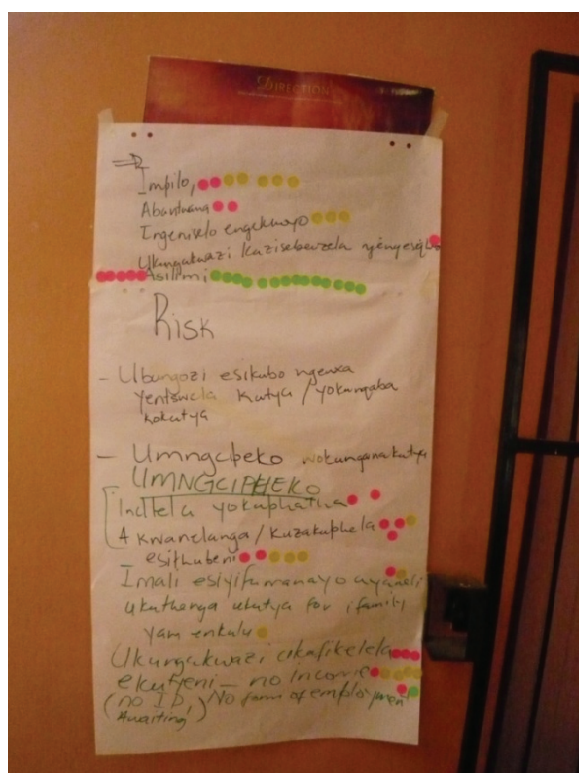 DIRECTION
Impilo,
Abantwana
Ingeniselo engekhoyo
Ukungakwazi kuzisebenzela
Asilimi
Risk
- Ubungozi esikubo ngenxa
yentswela kutya / yokungaba
kokutya
- Umngcipeko wokunganakutya
UMNGCIPHEKO
Indlela yokuphatha
Akwanelanga / kuzakuphela
esithubeni
Imali esiyifumanayo ayaneli
ukuthenga ukutya for ifamily
yam enkulu
Ukungakwazi ukufikelela
ekutyeni - no income
(no ID, No form of employment
Awaiting)